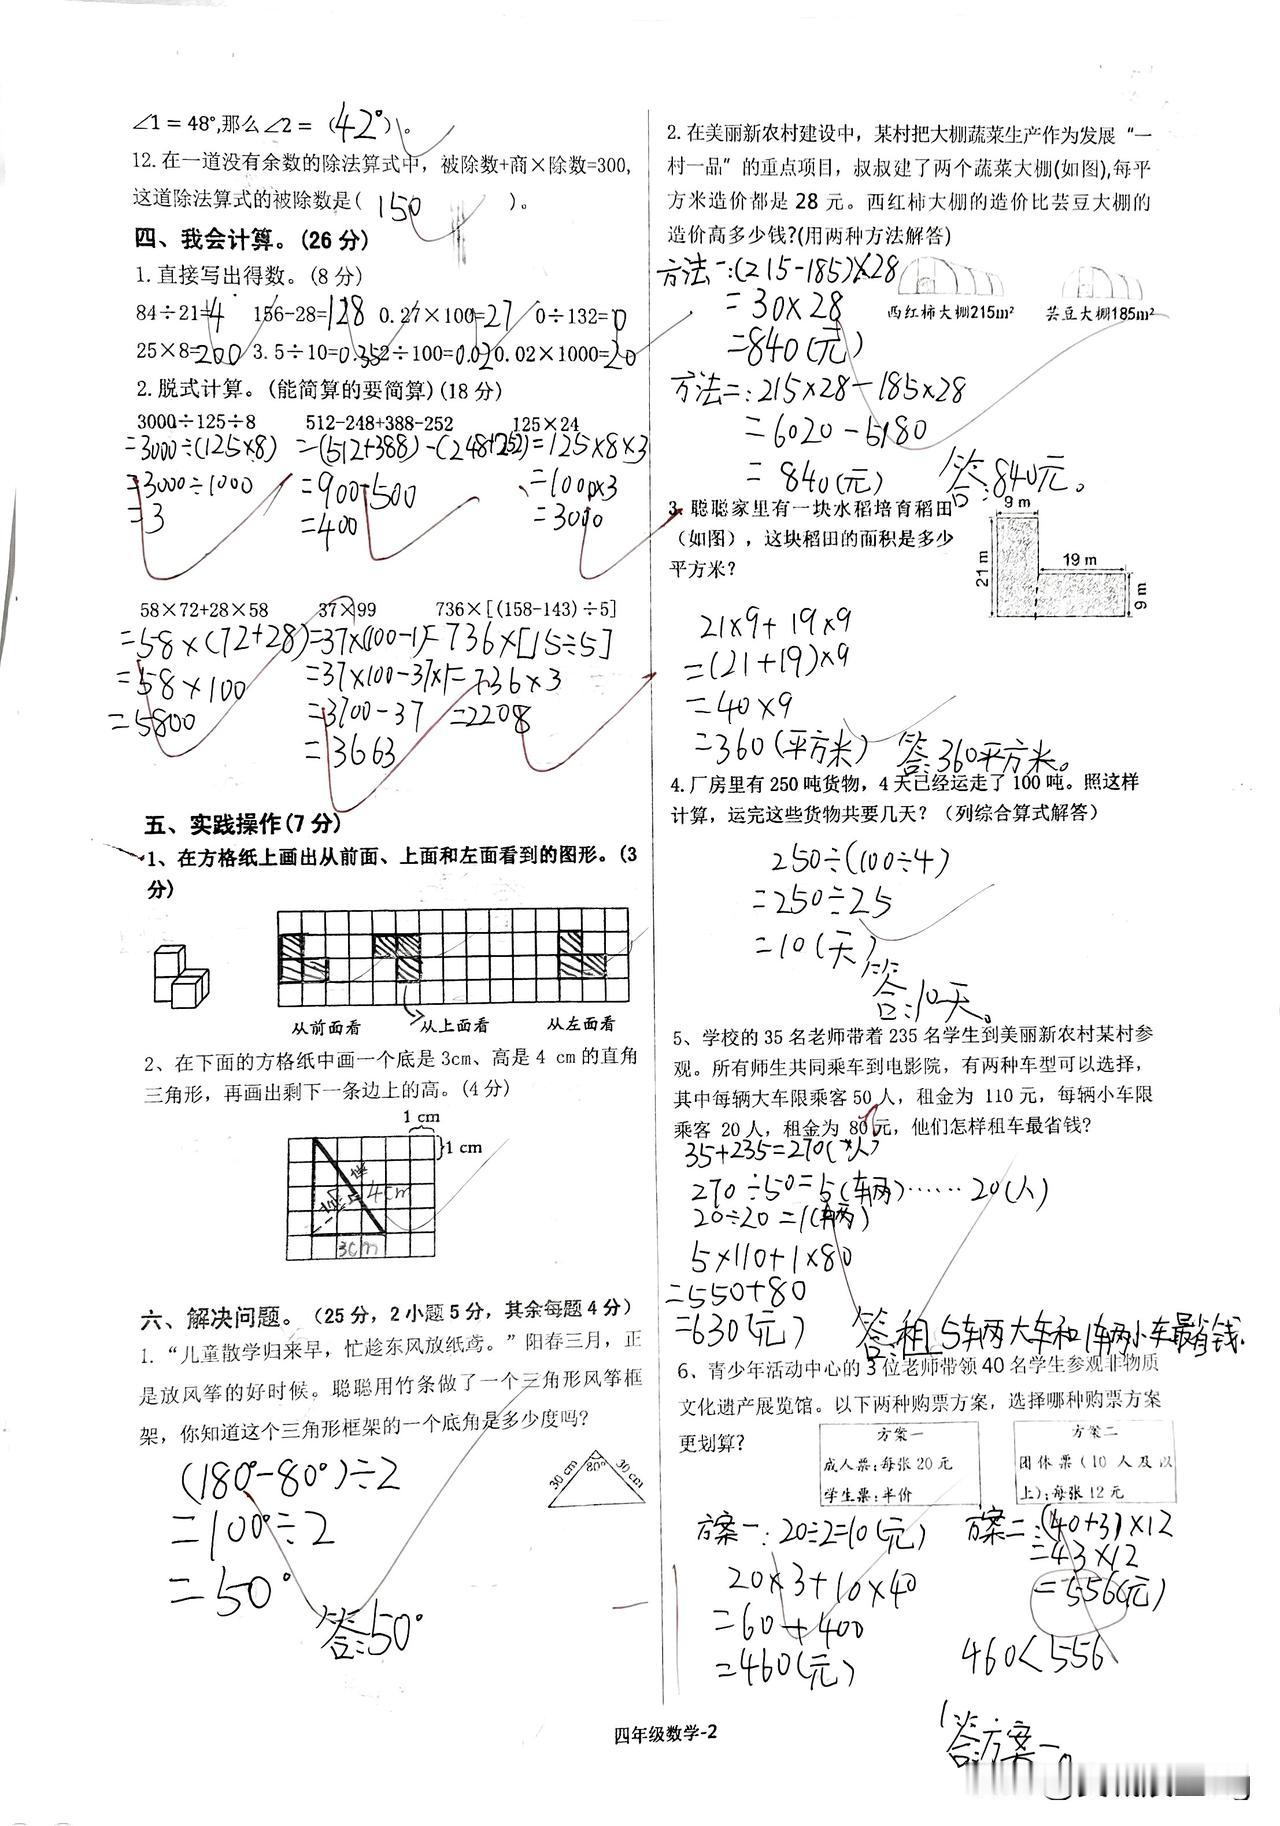 ∠1＝48°,那么∠2＝（42°）。
12.在一道没有余数的除法算式中，被除数+商×除数=300,
这道除法算式的被除数是( 150 )。
四、我会计算。(26分)
1.直接写出得数。(8分)
84÷21=4 156-28=128 0.27×100=27 0÷132=0
25×8=200 3.5÷10=0.35 2÷100=0.02 0.02×1000=20
2.脱式计算。(能简算的要简算)(18分)
3000÷125÷8 512-248+388-252 125×24
=3000÷(125×8) =(512+388)-(248+252) =125×8×3
=3000÷1000 =900-500 =1000×3
=3 =400 =3000
58×72+28×58 37×99 736×[(158-143)÷5]
=58×(72+28) =37×(100-1) =736×[15÷5]
=58×100 =37×100-37×1 =736×3
=5800 =3700-37 =2208
=3663
五、实践操作(7分)
1、在方格纸上画出从前面、上面和左面看到的图形。(3
分)
从前面看 从上面看 从左面看
2、在下面的方格纸中画一个底是3cm、高是4 cm的直角
三角形，再画出剩下一条边上的高。(4分)
1 cm
1 cm
4cm
3cm
六、解决问题。（25分，2小题5分，其余每题4分）
1.“儿童散学归来早，忙趁东风放纸鸢。”阳春三月，正
是放风筝的好时候。聪聪用竹条做了一个三角形风筝框
架，你知道这个三角形框架的一个底角是多少度吗?
30 cm 80° 30 cm
(180°-80°)÷2
=100°÷2
=50°
答:50°
2.在美丽新农村建设中，某村把大棚蔬菜生产作为发展“一
村一品”的重点项目，叔叔建了两个蔬菜大棚(如图),每平
方米造价都是28元。西红柿大棚的造价比芸豆大棚的
造价高多少钱?(用两种方法解答)
方法一:(215-185)×28
=30×28
=840(元)
西红柿大棚215m² 芸豆大棚185m²
方法二:215×28-185×28
=6020-5180
=840(元)
答:840元。
3.聪聪家里有一块水稻培育稻田
（如图），这块稻田的面积是多少
平方米?
9 m
21 m
19 m
9 m
21×9+19×9
=(21+19)×9
=40×9
=360(平方米)
答:360平方米。
4.厂房里有250吨货物，4天已经运走了100吨。照这样
计算，运完这些货物共要几天？（列综合算式解答）
250÷(100÷4)
=250÷25
=10(天)
答:10天。
5、学校的35名老师带着235名学生到美丽新农村某村参
观。所有师生共同乘车到电影院，有两种车型可以选择，
其中每辆大车限乘客50人，租金为 110元，每辆小车限
乘客 20人，租金为 80元，他们怎样租车最省钱?
35+235=270(人)
270÷50=5(辆)……20(人)
20÷20=1(辆)
5×110+1×80
=550+80
=630(元)
答:租5辆大车和1辆小车最省钱.
6、青少年活动中心的3位老师带领40名学生参观非物质
文化遗产展览馆。以下两种购票方案，选择哪种购票方案
更划算?
方案一
成人票:每张20元
学生票:半价
方案二
团体票(10人及以
上):每张12元
方案一:20÷2=10(元)
20×3+10×40
=60+400
=460(元)
方案二:(40+3)×12
=43×12
=556(元)
460<556
答:方案一。
四年级数学-2